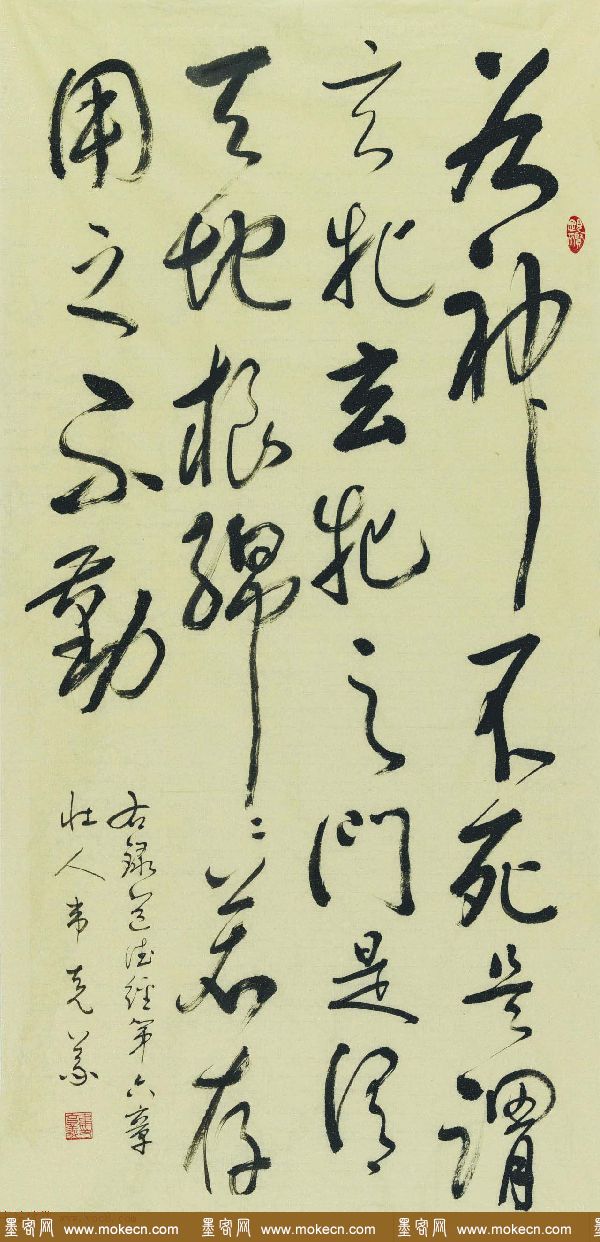 谷神不死是謂
玄牝玄牝之門是謂
天地根綿〻若存
用之不勤
右録道德經第六章
壮人韦克義
墨客网 www.mokecn.com 墨客网 www.mokecn.com 墨客网 www.mokecn.com